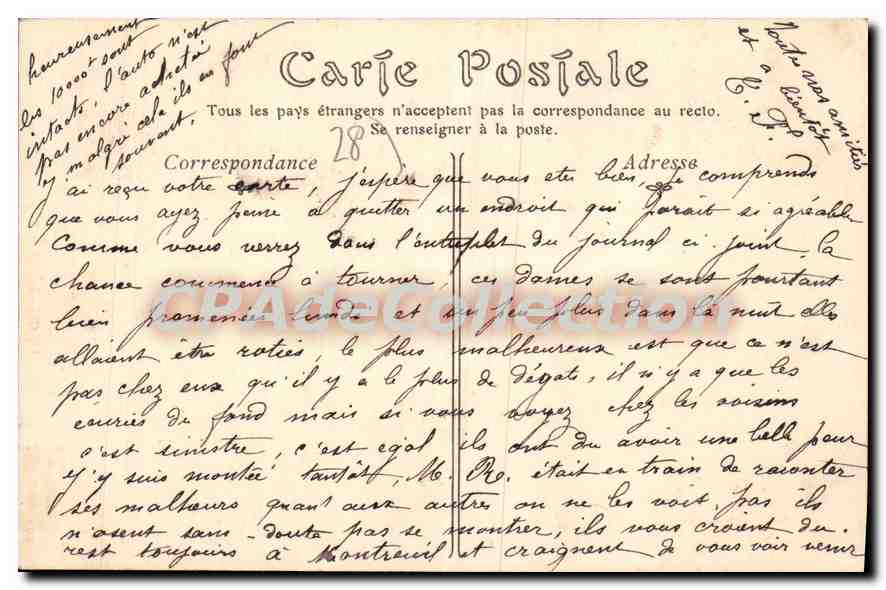 heureusement
les 10000f sont
intacts, l'auto n'est
pas encore achetée
malgré cela ils en font
souvent.
Toutes nos amitiés
et à bientôt
Carte Postale
Tous les pays étrangers n'acceptent pas la correspondance au recto.
Se renseigner à la poste.
28
Correspondance
Adresse
J'ai reçu votre carte, j'espère que vous etes bien, je comprends
que vous ayez peine a quitter un endroit qui parait si agréable
Comme vous verrez dans l'entrefilet du journal ci-joint, la
chance commence à tourner, ces dames se sont pourtant
bien promenées lundi et un peu plus dans la nuit elles
allaient être roties, le plus malheureux est que ce n'est
pas chez eux qu'il y a le plus de dégats, il n'y a que les
écuries du fond mais si vous voyez chez les voisins
c'est sinistre, c'est egal ils ont du avoir une belle peur
J'y suis montée tantôt, M. R. était en train de raconter
ses malheurs quant aux autres on ne les voit pas ils
n'osent sans-doute pas se montrer, ils vous croient du
rest toujours à Montreuil et craignent de vous voir venir
CPAdeCollection